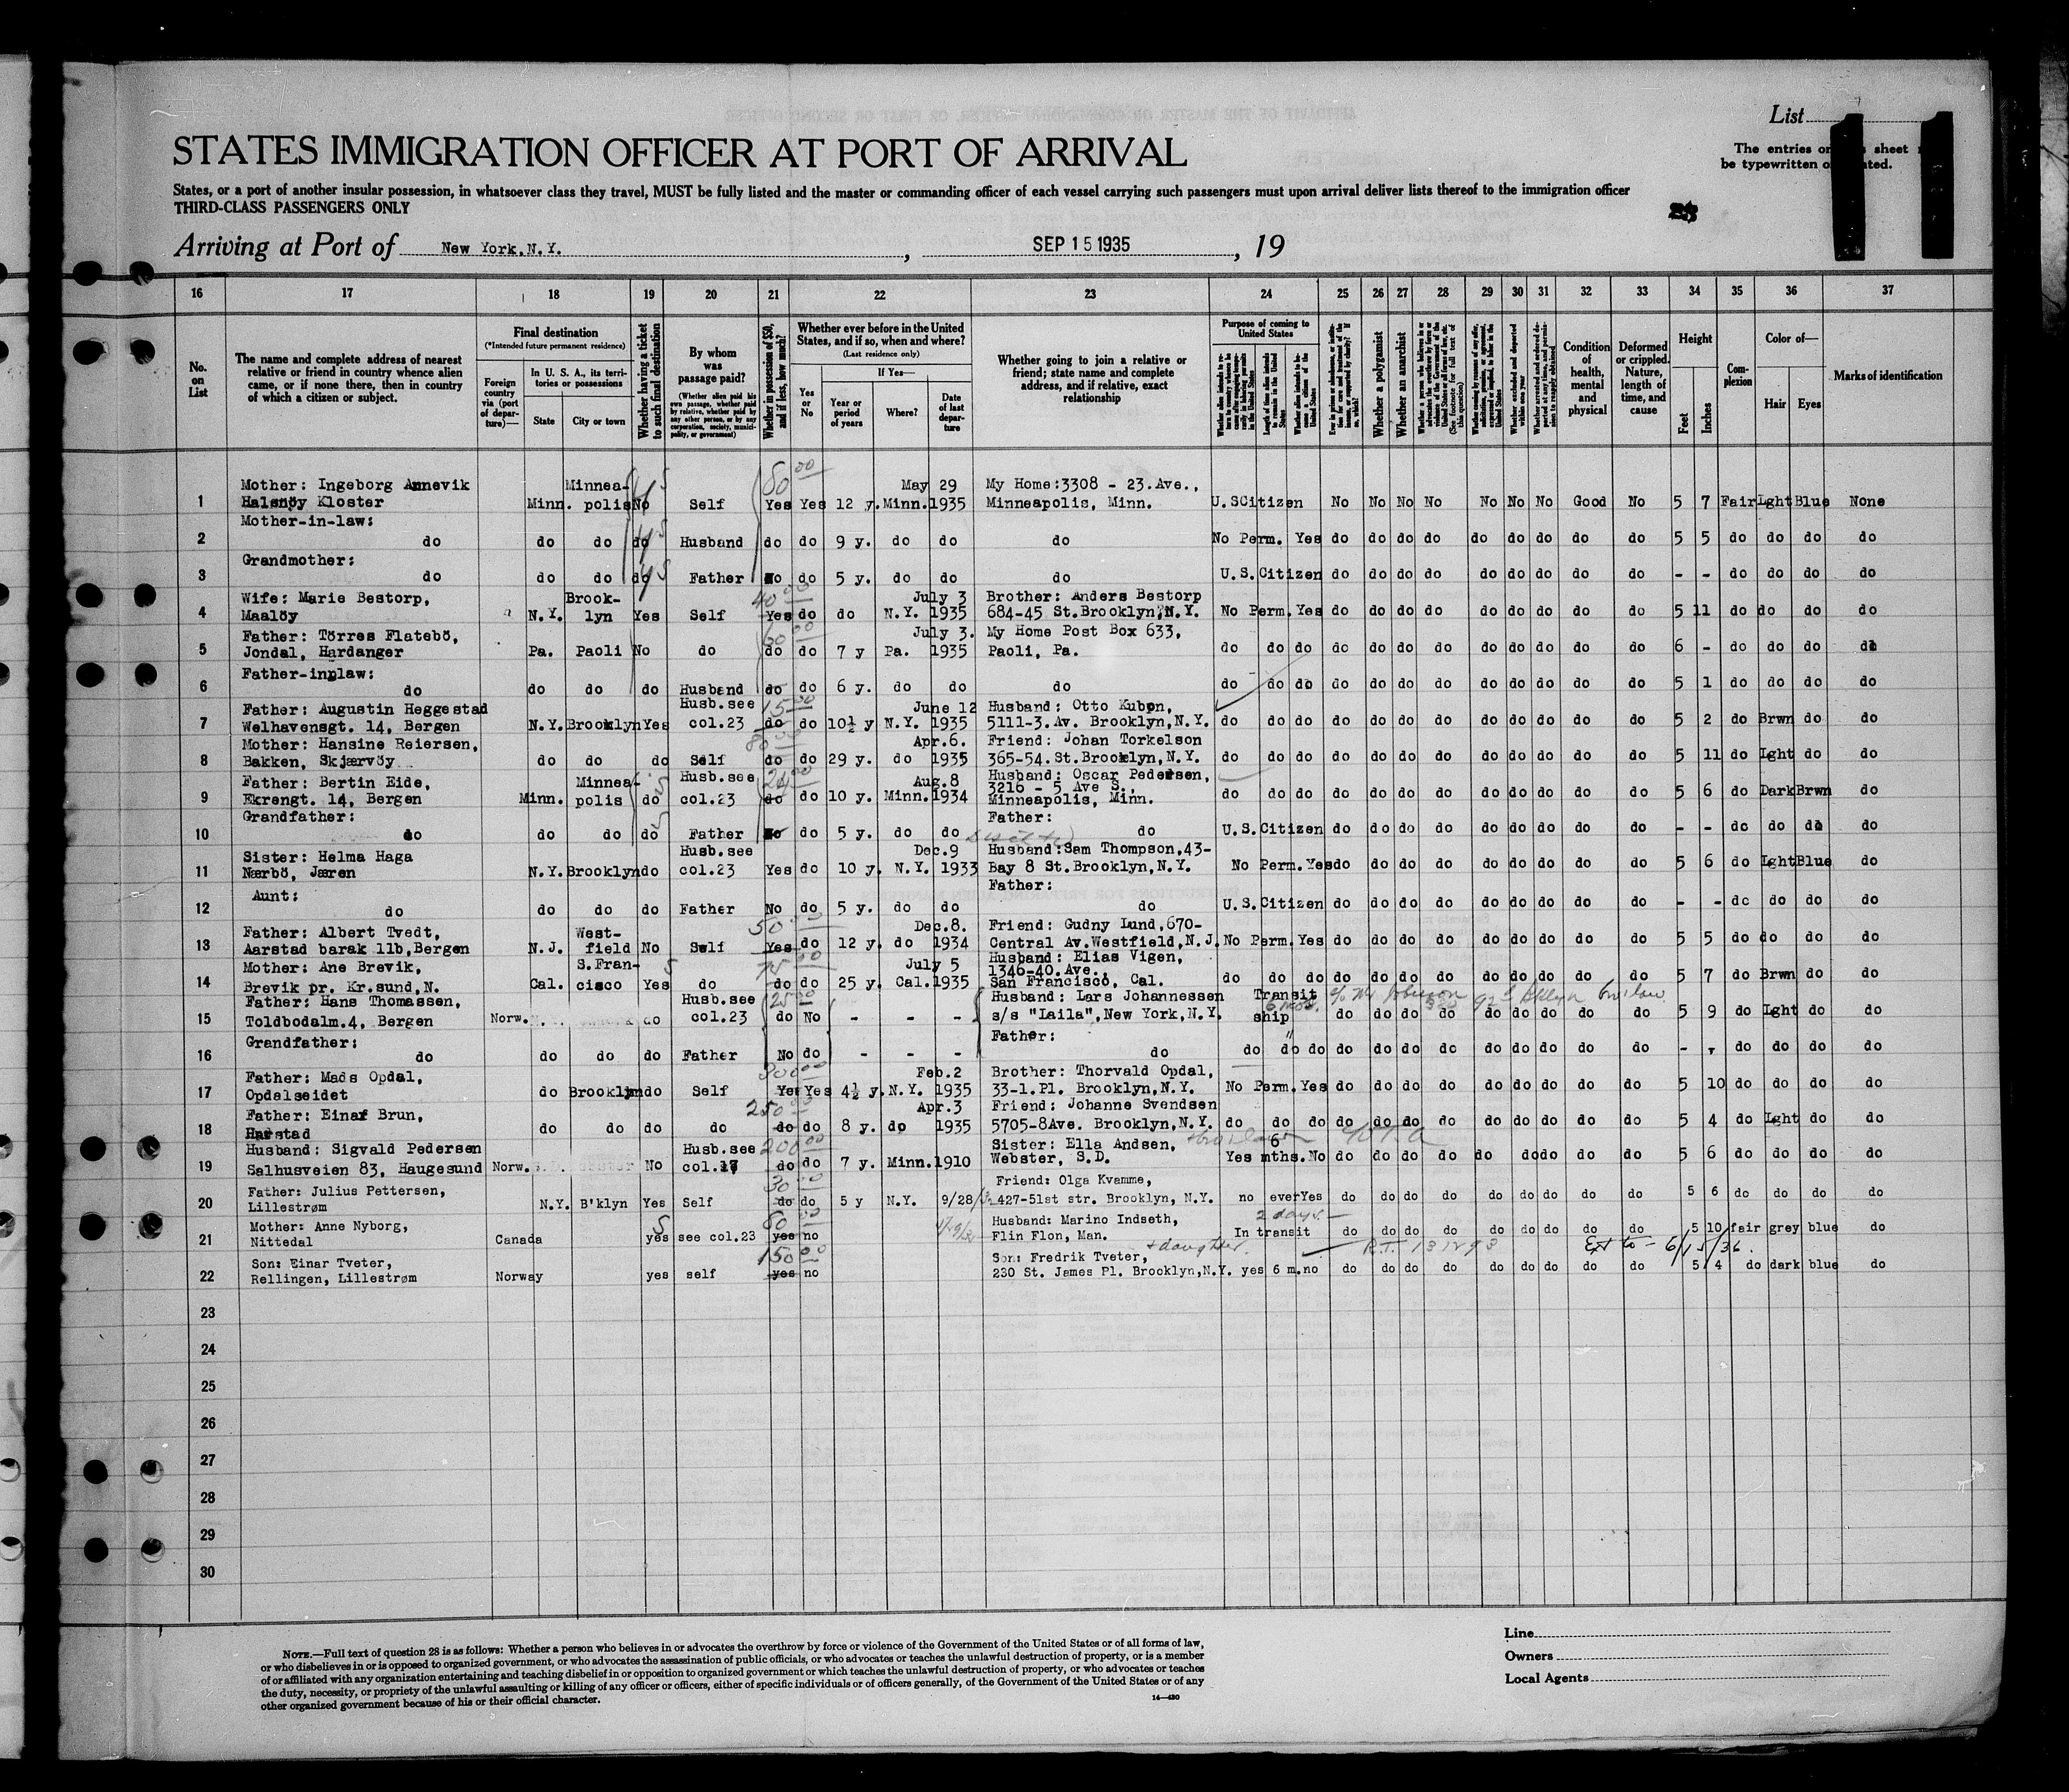 List
11
The entries on sheet
be typewritten o
STATES IMMIGRATION OFFICER AT PORT OF ARRIVAL
States, or a port of another insular possession, in whatsoever class they travel, MUST be fully listed and the master or commanding officer of each vessel carrying such passengers must upon arrival deliver lists thereof to the immigration officer
THIRD-CLASS PASSENGERS ONLY
Arriving at Port of New York, N.Y. , SEP 15 1935 , 19
16 17 18 19 20 21 22 23 24 25 26 27 28 29 30 31 32 33 34 35 36 37
No. on List
The name and complete address of nearest relative or friend in country whence alien came, or if none there, then in country of which a citizen or subject.
Final destination
(*Intended future permanent residence)
Foreign country via (port of departure)—
In U. S. A., its territories or possessions
State
City or town
Whether having a ticket to such final destination
By whom was passage paid?
(Whether alien paid his own passage, whether paid by relative, whether paid by any other person, or by any corporation, society, municipality, or government)
Whether in possession of $50, and if less, how much?
Whether ever before in the United States, and if so, when and where?
(Last residence only)
Yes or No
If Yes—
Year or period of years
Where?
Date of last departure
Whether going to join a relative or friend; state name and complete address, and if relative, exact relationship
Purpose of coming to United States
Whether a polygamist
Whether an anarchist
Condition of health, mental and physical
Deformed or crippled. Nature, length of time, and cause
Height
Feet
Inches
Complexion
Color of—
Hair
Eyes
Marks of identification
Mother: Ingeborg Annevik Minnea- 80 00 May 29 My Home:3308 - 23.Ave.,
1 Halsnöy Kloster Minn. polis No Self Yes Yes 12 y. Minn. 1935 Minneapolis, Minn. U.S Citizen No No No No No No No Good No 5 7 Fair Lght Blue None
Mother-in-law:
2 do do do do Husband do do 9 y. do do do No Perm. Yes do do do do do do do do do 5 5 do do do do
Grandmother:
3 do do do do Father No do 5 y. do do do U.S. Citizen do do do do do do do do do - - do do do do
Wife: Marie Bestorp, Brook- 40 00 July 3 Brother: Anders Bestorp
4 Maalöy N.Y. lyn Yes Self Yes do do N.Y. 1935 684-45 St. Brooklyn, N.Y. No Perm. Yes do do do do do do do do do 5 11 do do do do
Father: Törres Flatebö, 60 00 July 3. My Home Post Box 633,
5 Jondal, Hardanger Pa. Paoli No do do do 7 y Pa. 1935 Paoli, Pa. do do do do do do do do do do do do 6 - do do do do
Father-in-law:
6 do do do do Husband do do 6 y. do do do do do do do do do do do do do do do 5 1 do do do do
Father: Augustin Heggestad Husb. see 15 00 June 12 Husband: Otto Kubon,
7 Welhavensgt. 14, Bergen N.Y. Brooklyn Yes col.23 do do 10½ y N.Y. 1935 5111-3. Av. Brooklyn, N.Y. do do do do do do do do do do do do 5 2 do Brwn do do
Mother: Hansine Reiersen, 80 00 Apr.6. Friend: Johan Torkelson
8 Bakken, Skjærvöy do do do Self do do 29 y. do 1935 365-54. St. Brooklyn, N.Y. do do do do do do do do do do do do 5 11 do Lght do do
Father: Bertin Eide, Minnea- Husb. see 24 00 Aug.8 Husband: Oscar Pedersen,
3216 - 5 Ave S.,
9 Ekrengt. 14, Bergen Minn. polis do col.23 do do 10 y. Minn. 1934 Minneapolis, Minn. do do do do do do do do do do do do 5 6 do Dark Brwn do
Grandfather: Father:
10 do do do do Father No do 5 y. do do do U.S. Citizen do do do do do do do do do - - do do do do
Sister: Helma Haga Husb. see Dec.9 Husband: Sam Thompson, 43-
11 Nærbö, Jæren N.Y. Brooklyn do col.23 Yes do 10 y. N.Y. 1933 Bay 8 St. Brooklyn, N.Y. No Perm. Yes do do do do do do do do do 5 6 do Lght Blue do
Aunt: Father:
12 do do do do Father No do 5 y. do do do U.S. Citizen do do do do do do do do do - - do do do do
Father: Albert Tvedt, West- 50 00 Dec.8. Friend: Gudny Lund, 670-
13 Aarstad barak 11b, Bergen N.J. field No Self Yes do 12 y. do 1934 Central Av. Westfield, N.J. No Perm. Yes do do do do do do do do do 5 5 do do do do
Mother: Ane Brevik, S. Fran- 75 00 July 5 Husband: Elias Vigen,
1346-40. Ave.,
14 Brevik pr. Kr.sund, N. Cal. cisco Yes do do do 25 y. Cal. 1935 San Francisco, Cal. do do do do do do do do do do do do 5 7 do Brwn do do
Father: Hans Thomassen, Husb. see 25 00 Husband: Lars Johannessen Transit
15 Toldbodalm.4, Bergen Norw. do col.23 do No - - - s/s "Laila", New York, N.Y. ship do do do do do do do do do 5 9 do Lght do do
Grandfather: Father:
16 do do do do Father No do - - - do do do do do do do do do do do do do - - do do do do
Father: Mads Opdal, 300 00 Feb.2 Brother: Thorvald Opdal,
17 Opdalseidet do Brooklyn do Self Yes Yes 4½ y. N.Y. 1935 33-1. Pl. Brooklyn, N.Y. No Perm. Yes do do do do do do do do do 5 10 do do do do
Father: Einar Brun, 250 00 Apr.3 Friend: Johanne Svendsen
18 Harstad do do do do do do 8 y. do 1935 5705-8Ave. Brooklyn, N.Y. do do do do do do do do do do do do 5 4 do Lght do do
Husband: Sigvald Pedersen Husb. see 200 00 Sister: Ella Andsen, 6
19 Salhusveien 83, Haugesund Norw. No col.17 do do 7 y. Minn. 1910 Webster, S.D. Yes mths. No do do do do do do do do do 5 6 do do do do
Father: Julius Pettersen, 30 00 Friend: Olga Kvamme,
20 Lillestrøm N.Y. B'klyn Yes Self do do 5 y N.Y. 9/28/ 427-51st str. Brooklyn, N.Y. no ever Yes do do do do do do do do do 5 6 do do do do
Mother: Anne Nyborg, 60 00 Husband: Marino Indseth, 2 days
21 Nittedal Canada yes see col.23 yes no Flin Flon, Man. In transit do do do do do do do do do 5 10 fair grey blue do
Son: Einar Tveter, 150 00 Son: Fredrik Tveter, + daughter. R.T. 131293 Ext to - 6/15/36.
22 Rellingen, Lillestrøm Norway yes self yes no 230 St. James Pl. Brooklyn, N.Y. yes 6 m. no do do do do do do do do do 5 4 do dark blue do
23
24
25
26
27
28
29
30
NOTE.—Full text of question 28 is as follows: Whether a person who believes in or advocates the overthrow by force or violence of the Government of the United States or of all forms of law,
or who disbelieves in or is opposed to organized government, or who advocates the assassination of public officials, or who advocates or teaches the unlawful destruction of property, or is a member
of or affiliated with any organization entertaining and teaching disbelief in or opposition to organized government or which teaches the unlawful destruction of property, or who advocates or teaches
the duty, necessity, or propriety of the unlawful assaulting or killing of any officer or officers, either of specific individuals or of officers generally, of the Government of the United States or of any
other organized government because of his or their official character.
14—430
Line
Owners
Local Agents